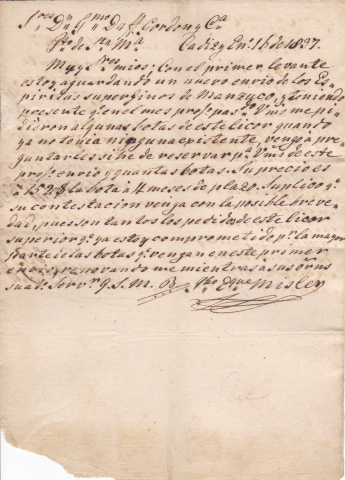 S.res D.n G.mo D. y S. Gordon y C.a
P.to de S.ta M.a Cadiz y En.o 16 de 1837.
Muy S.res mios: Con el primer levante
estoy aguardando un nuevo envio de los Es-
piritus superfinos de Manzyco, y teniendo
presente q.e en el mes prof.o pas.o Vms me pi-
dieron algunas botas de este licor quando
ya no tenia ninguna existente, vengo a pre-
guntarles si he de reservar p.a Vms de este
prof.o envio y quantas botas. Su precio es
a 152 la bota a 4 meses de plazo. Suplico q.e
su contestacion venga con la posible breve-
dad, pues son tantos los pedidos de este licor
superior q.e ya estoy comprometido p.r la mayor
parte de las botas q.e vengan en este primer
envio, renovandome mientras a sus orns
su at.o Serv.or Q. S. M. B. Misley